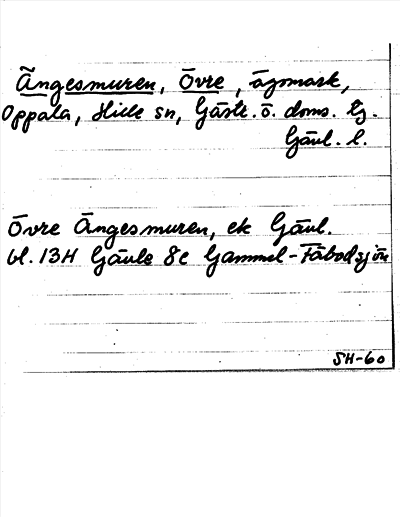 Ängesmuren, Övre, ägomark,
Oppala, Hille sn, Gästr. ö. doms. tg.
Gävl. l.
Övre Ängesmuren, ek Gävl.
bl. 13H Gävle 8e Gammel-Fäbodsjön
SH-60